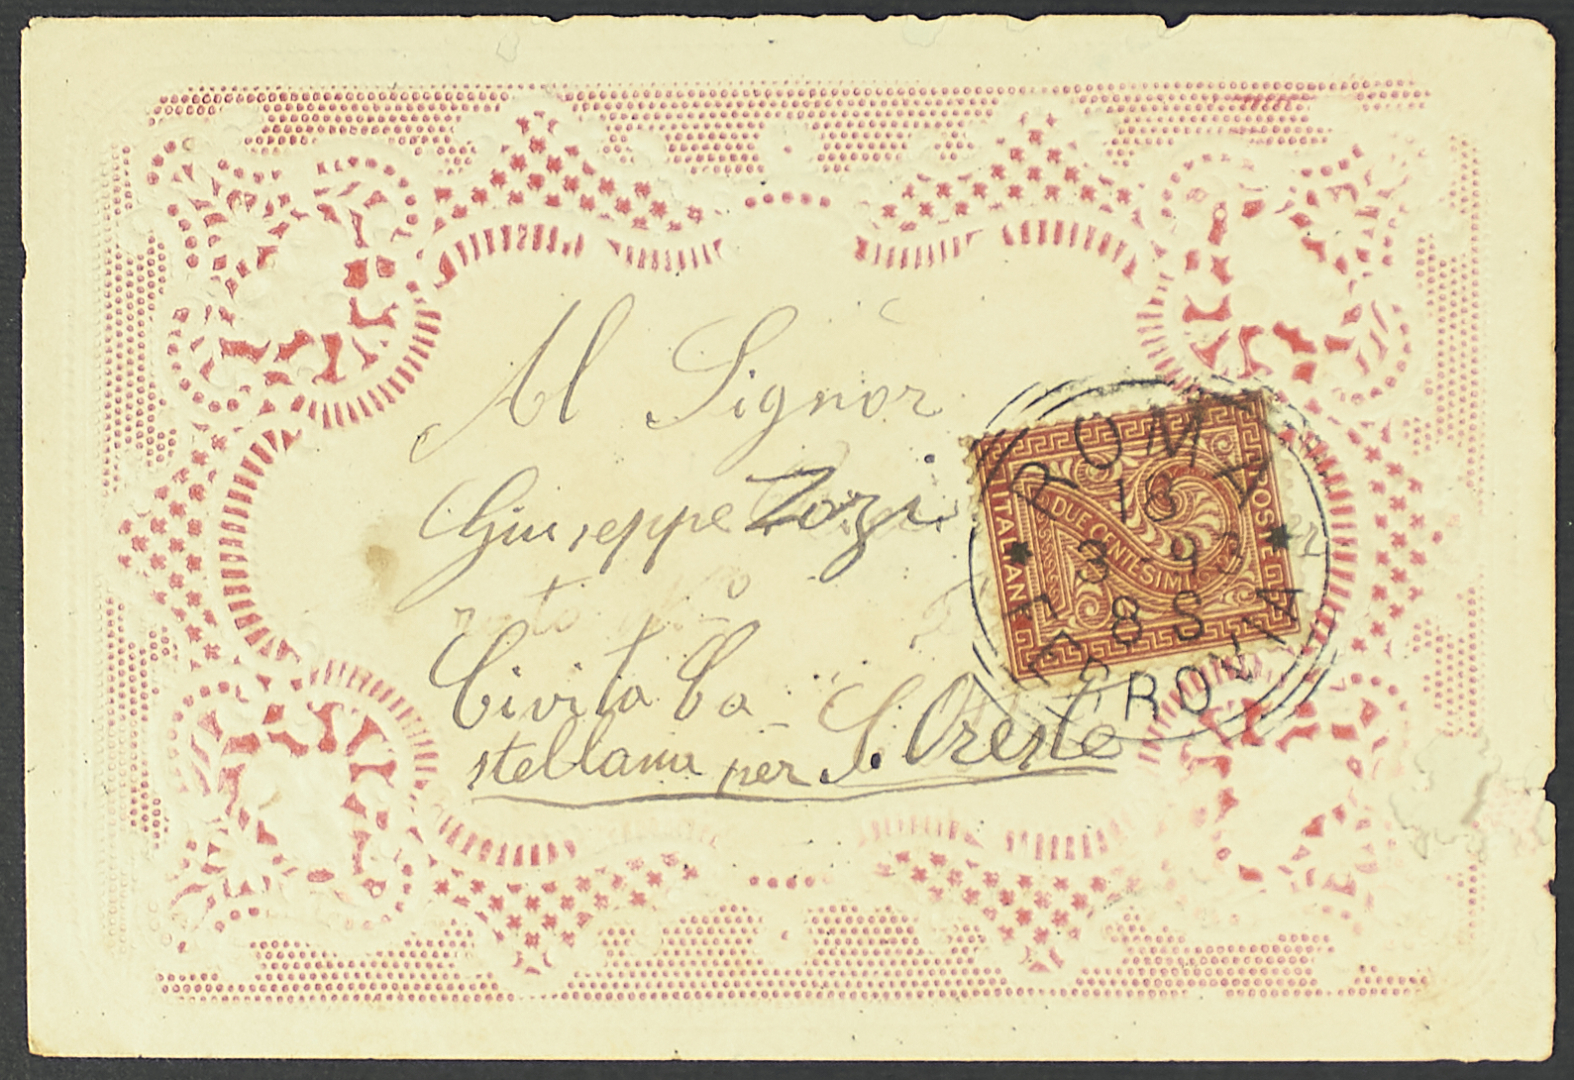 Al Signor
Giuseppe Zozi
Civita Ca
stellana per S. Oreste
POSTE
ITALIANE
DUE CENTESIMI
ROMA
13
3 9
8 S
FERROVIA